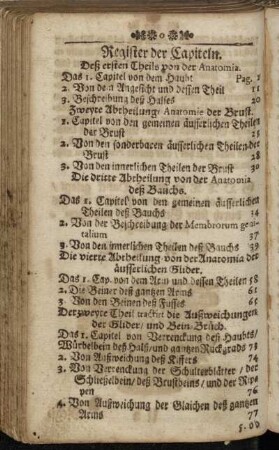 Register der Capiteln.
Deß ersten Theils von der Anatomia.
Das 1. Capitel von dem Haubt Pag. 1
2. Von dem Angesicht und dessen Theil 11
3. Beschreibung deß Halses 20
Zweyte Abtheilung Anatomie der Brust.
1. Capitel von den gemeinen äusserlichen Theilen
der Brust 25
2. Von den sonderbaren äusserlichen Theilen der
Brust 28
3. Von den innerlichen Theilen der Brust 30
Die dritte Abtheilung von der Anatomia
deß Bauchs.
Das 1. Capitel von den gemeinen äusserlichen
Theilen deß Bauchs 34
2. Von der Beschreibung der Membrorum geni-
talium 37
3. Von den innerlichen Theilen deß Bauchs 39
Die vierte Abtheilung von der Anatomia der
äusserlichen Glider.
Das 1. Cap. von dem Arm und dessen Theilen 58
2. Die Beiner deß gantzen Arms 61
3 Von den Beinen deß Fusses 65
Der zweyte Theil tractirt die Außweichungen
der Glider, und Bein-Brüch.
Das 1. Capitel von Verrenckung deß Haubts/
Würbelbein deß Halß/ und gantzen Ruckgrads 73
2. Von Außweichung deß Kifers 74
3. Von Verrenckung der Schulterblätter / der
Schlüsselbein / deß Brustbeins / und der Rip-
pen 76
4. Von Außweichung der Glaichen deß gantzen
Arms 77